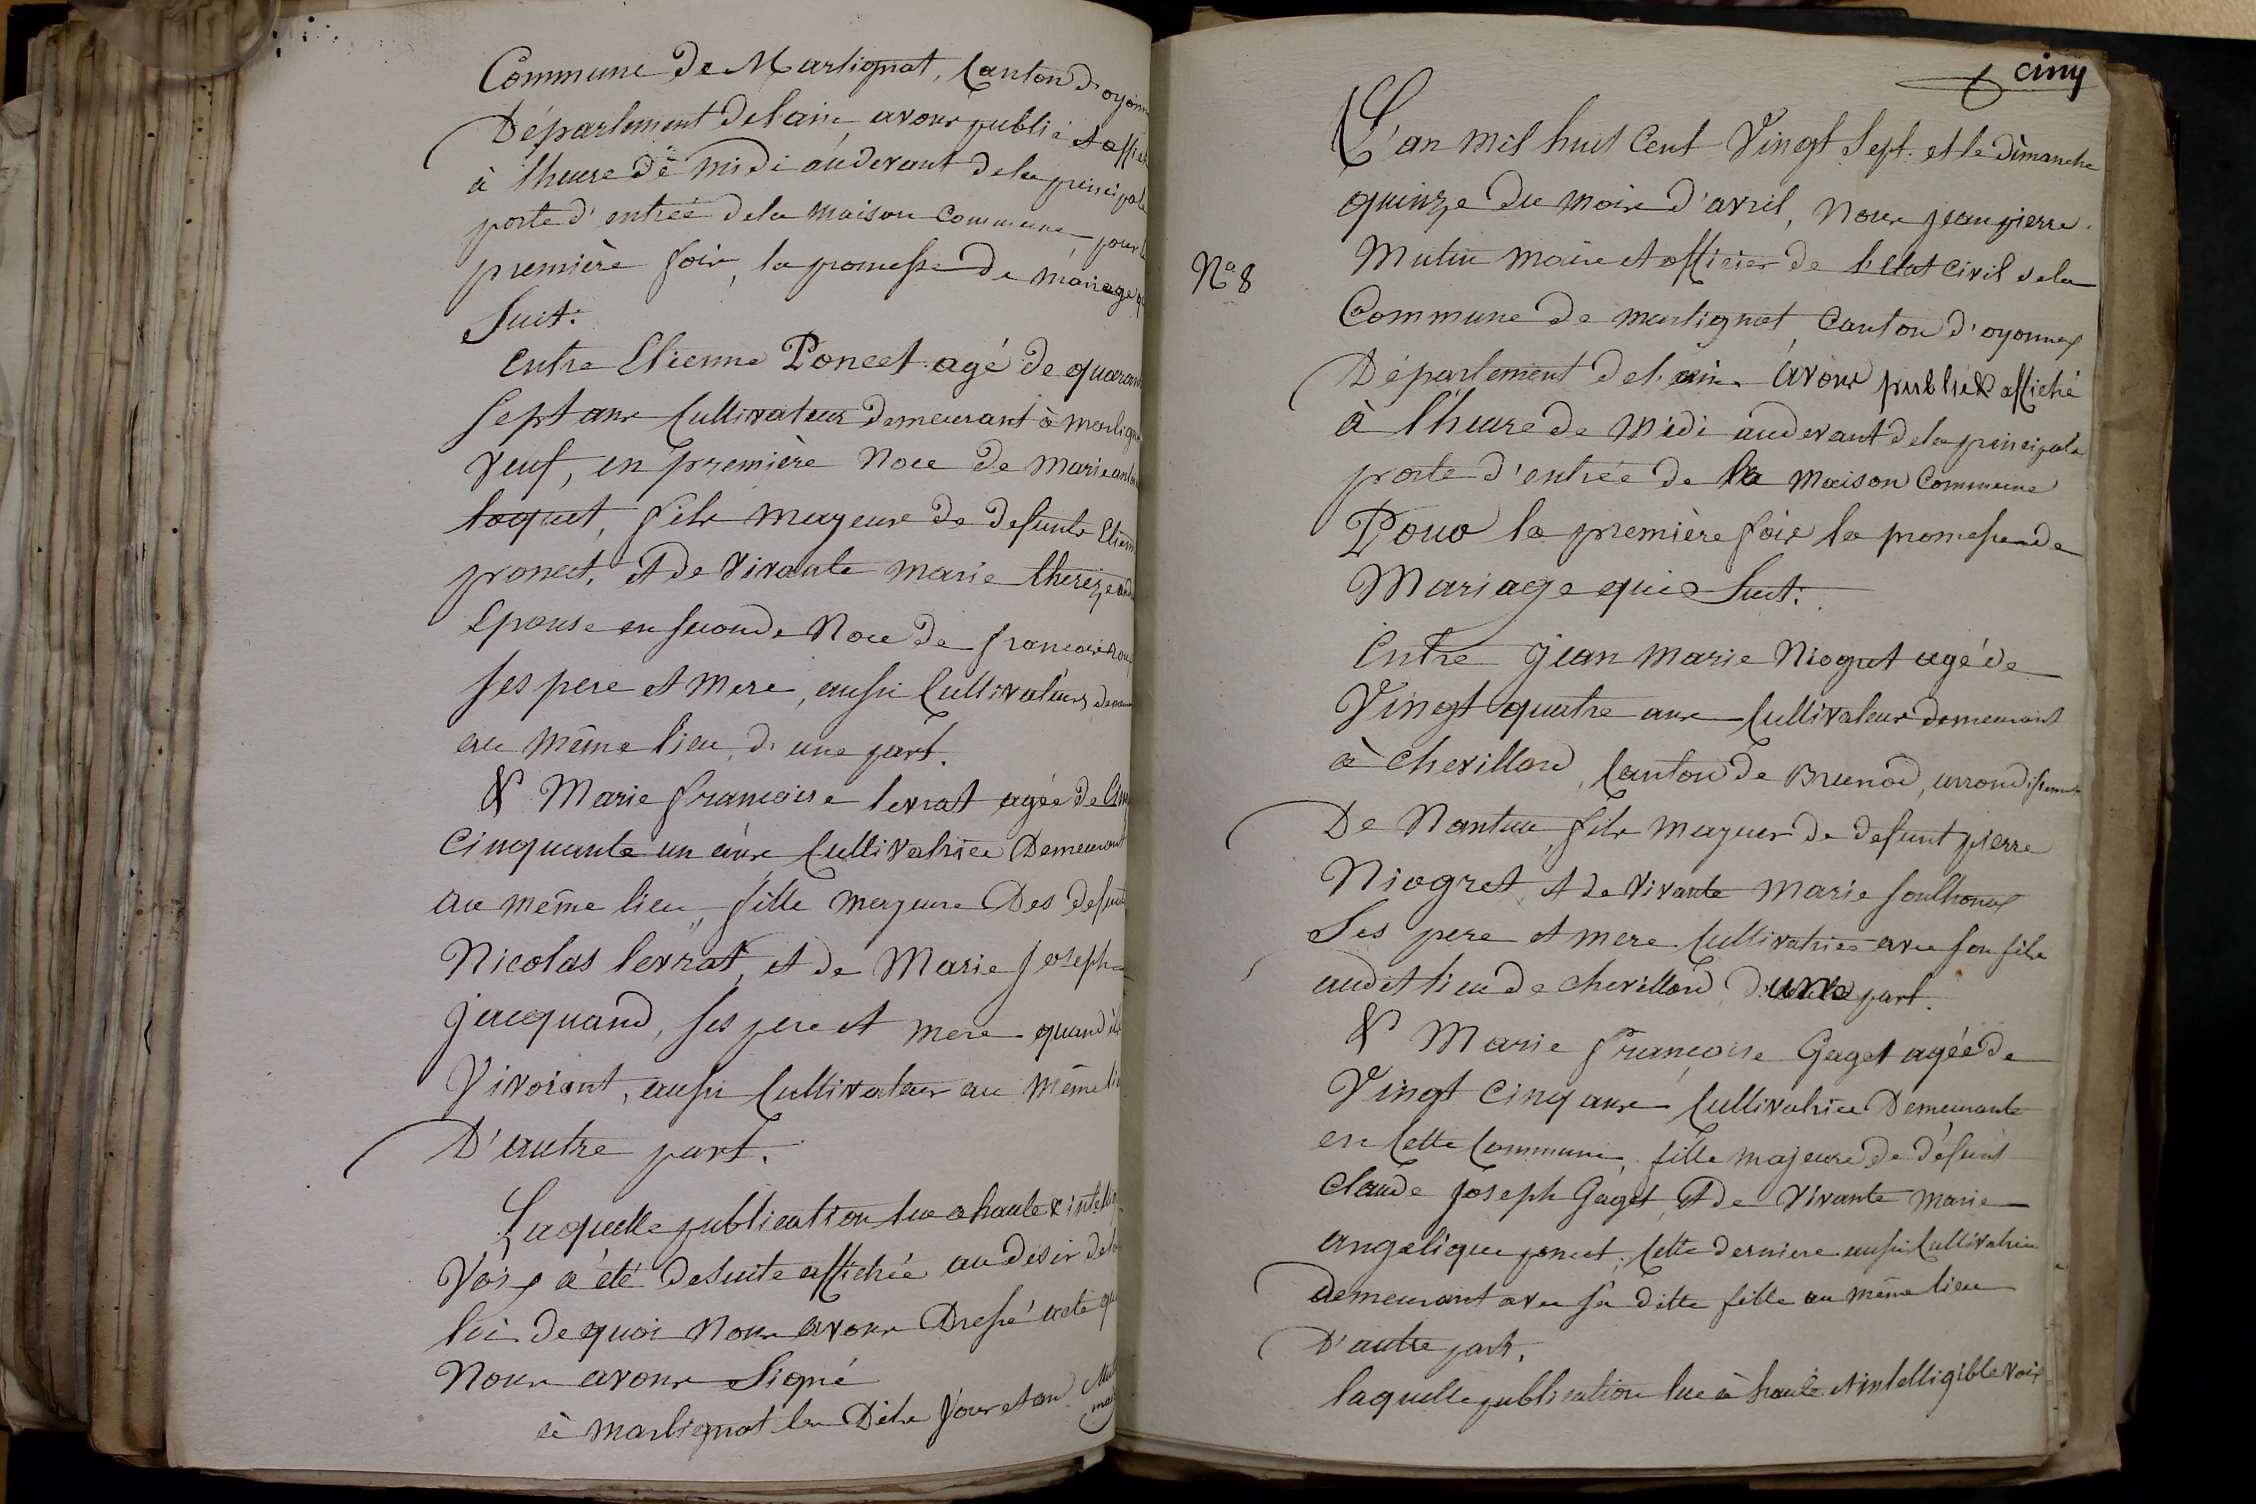 Commune de Martignat, Canton d'oyonn
Département de lain, avons publié et affi
à lheure de midi au devant dela principale
porte d'entrée dela maison commune, pour l
première fois, la promesse de mariage q
Suit.
Entre Etienne Poncet agé de quaran
Sept ans Cultivateur demeurant à martign
Veuf, en première Noce de marie
loquet, fils mayeur de defunts Etien
poncet, et de vivante marie thereze
Epouse en seconde Noce de francois
ses pere et mere, aussi Cultivateurs
au même lieu, d'une part.
& Marie francoise levrat agée de Cin
Cinquante un ans Cultivatrice Demeurant
au même lieu, fille mayeure Des defunt
Nicolas levrat, et de Marie Joseph
Jacquand, ses pere et mere quand ils
Vivoient, aussi Cultivateur au même li
D'autre part.
Laquelle publication lue a haute & intellig
Voix a été desuite affichée au desir de la
loi de quoi Nous avons Dressé acte que
Nous avons Signé
à martignat les Dits Jour et an
cinq
L'an mil huit Cent Vingt Sept. et le dimanche
quinze du mois d'avril, Nous jean pierre
Mutin maire et officier de l'Etat Civil dela
N° 8
Commune de martignat, Canton d'oyonnax
Département del'ain. avons publié & affiché
à l'heure de midi au devant dela principale
porte d'entrée de la maison Commune
Pour la première fois la promesse de
Mariage qui Suit.
Entre jean marie Niogret agé de
Vingt quatre ans Cultivateur demeurant
à chevillard, Canton de Brenod, arrondissement
De Nantua, fils mayeur de defunt pierre
Niogret, et de vivante marie
Ses pere et mere Cultivatrice avec son fils
audit lieu de chevillard d'une part.
& Marie françoise Gaget agée de
Vingt Cinq ans Cultivatrice Demeurante
en Cette Commune, fille majeure de défunt
Claude Joseph Gaget, et de vivante marie
angelique poncet, Cette derniere aussi Cultivatrice
demeurant avec sa ditte fille au même lieu
D'autre part.
laquelle publication lue à haute et intelligible voix